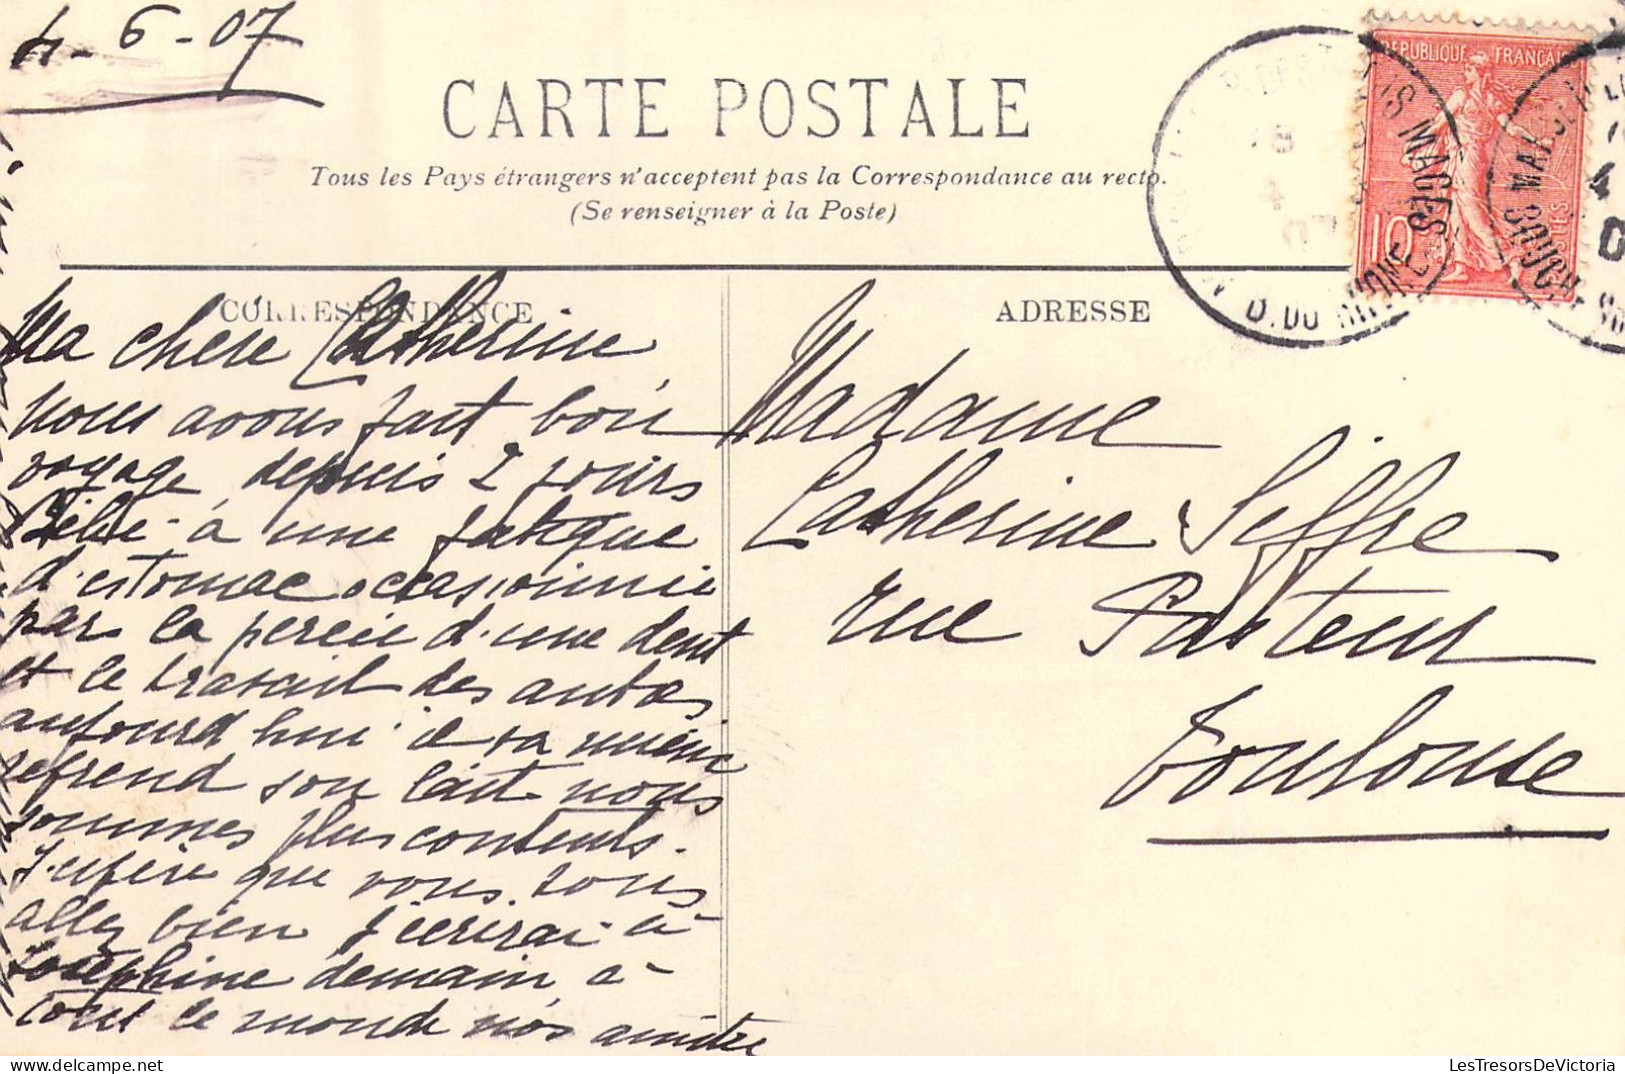 4-6-07
CARTE POSTALE
Tous les Pays étrangers n'acceptent pas la Correspondance au recto.
(Se renseigner à la Poste)
REPUBLIQUE FRANÇAISE
10
POSTES
MAGES
B. DU RHONE
MARSEILLE
BOUCH. DU
CORRESPONDANCE
Ma chere Catherine,
nous avons fait bon
voyage, depuis 2 jours
Bébé à une fatigue
d'estomac occasionnée
par la percée d'une dent
et le travail des autres
aujourd'hui il va mieux
reprend son lait nous
sommes plus contents.
J'espère que vous tous
allez bien j'écrirai à
Joséphine demain à
tout le monde nos amitiés
ADRESSE
Madame
Catherine Siffre
rue Pasteur
Toulouse
LesTresorsDeVictoria.com